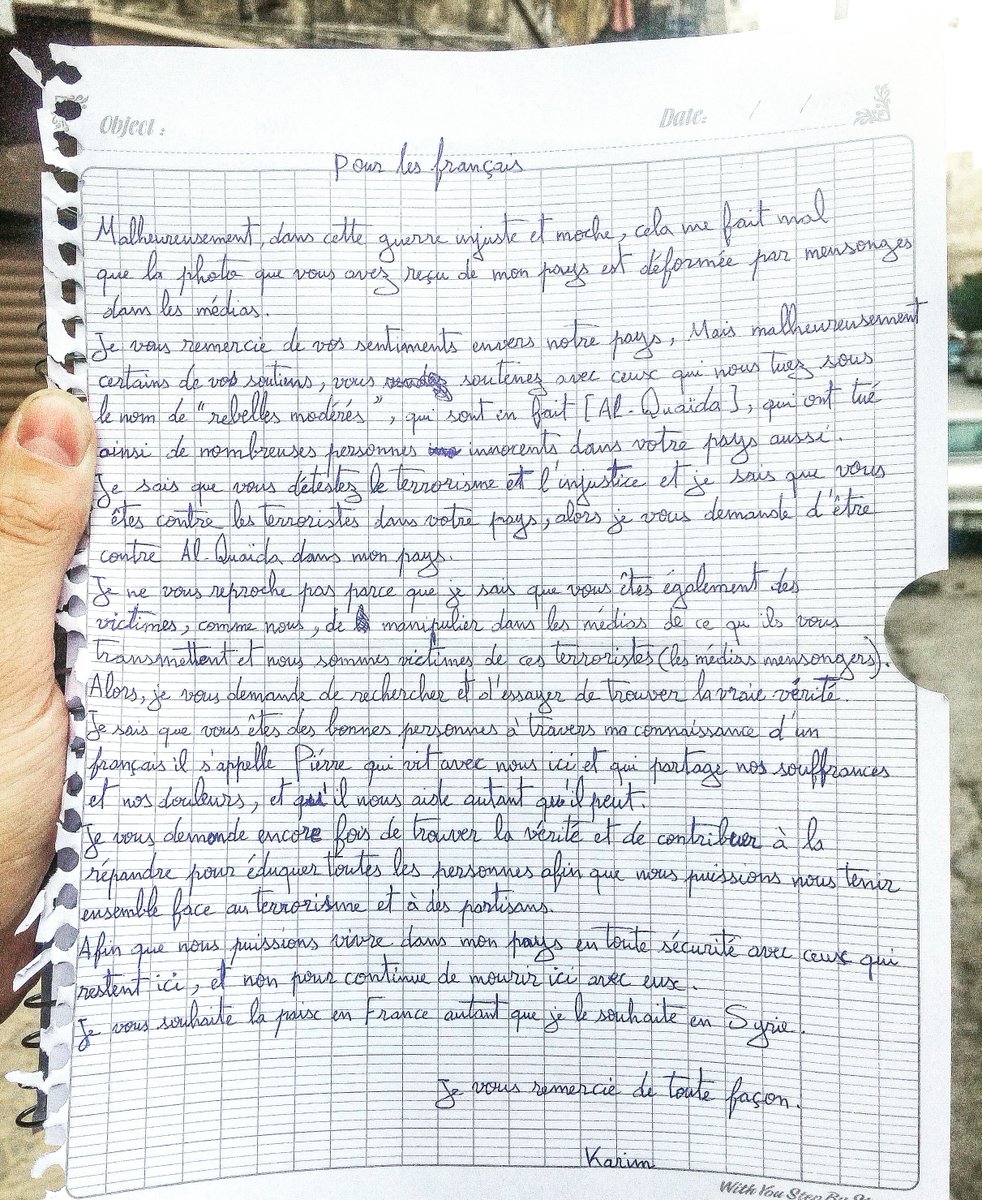 Object :
Date: / /
Pour les français
Malheureusement, dans cette guerre injuste et moche, cela me fait mal
que la photo que vous avez reçu de mon pays est déformée par mensonges
dans les médias.
Je vous remercie de vos sentiments envers notre pays, Mais malheureusement
certains de vos soutiens, vous soutenez avec ceux qui nous tuez sous
le nom de "rebelles modérés", qui sont en fait [Al-Quaïda], qui ont tué
ainsi de nombreuses personnes innocents dans votre pays aussi.
Je sais que vous détestez le terrorisme et l'injustice et je sais que vous
êtes contre les terroristes dans votre pays, alors je vous demande d'être
contre Al-Quaïda dans mon pays.
Je ne vous reproche pas parce que je sais que vous êtes également des
victimes, comme nous, de manipulier dans les médias de ce qu ils vous
transmettent et nous sommes victimes de ces terroristes (les médias mensongers).
Alors, je vous demande de rechercher et d'essayer de trouver la vraie vérité.
Je sais que vous êtes des bonnes personnes à travers ma connaissance d'un
français il s'appelle Piérre qui vit avec nous ici et qui partage nos souffrances
et nos douleurs, et qu'il nous aide autant qu'il peut.
Je vous demande encore fois de trouver la vérité et de contribuer à la
répandre pour éduquer toutes les personnes afin que nous puissions nous tenir
ensemble face au terrorisme et à des partisans.
Afin que nous puissions vivre dans mon pays en toute sécurité avec ceux qui
restent ici, et non pour continue de mourir ici avec eux.
Je vous souhaite la paix en France autant que je le souhaite en Syrie.
Je vous remercie de toute façon.
Karim
With You Step By